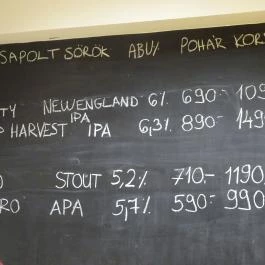 SAPOLT SÖRÖK ABV% POHÁR KORS
TY NEW ENGLAND IPA 6% 690.- 109
P HARVEST IPA 6,3% 890- 149
O STOUT 5,2% 710.- 1190
RO APA 5,7% 590- 990